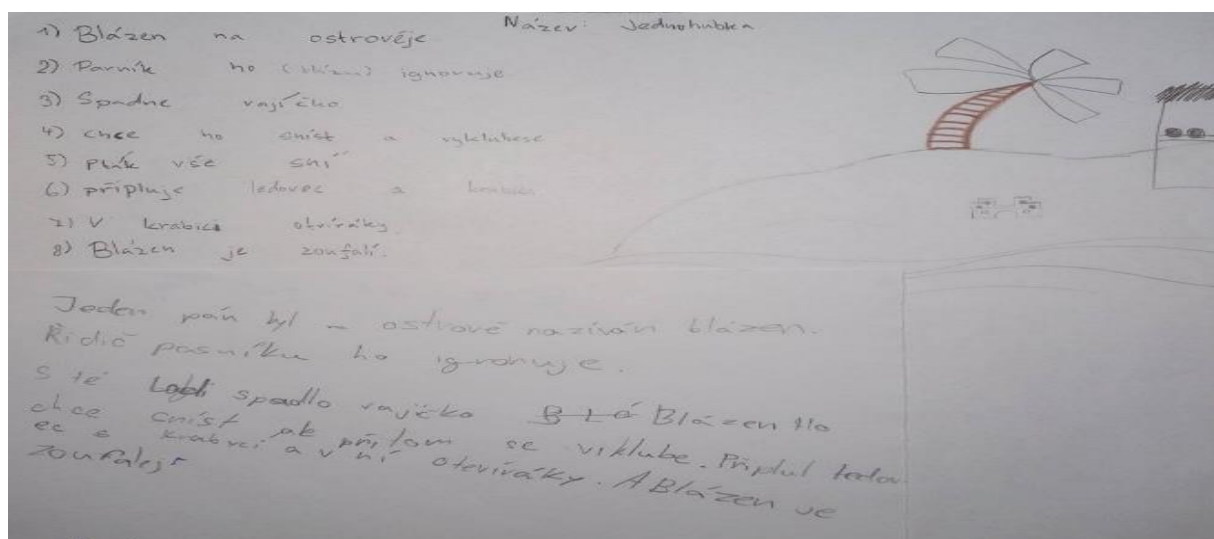 Název: Jednohubka
1) Blázen na ostrověje
2) Parník ho ignoruje
3) Spadne vajíčko
4) chce ho sníst a vyklubese
5) pták vše sní
6) připluje ledovec a krabice
7) V krabici otvíráky
8) Blázen je zoufalí.
Jeden pán byl ostrově nazíván blázen.
Řidič pasníku ho ignoruje.
S té Lodi spadlo vajíčko BLá Blázen Ho
chce cníst ak přitom se viklube. Připlul ledov
ec s krabicí a v ní otevíráky. A Blázen ve
zoufalejs